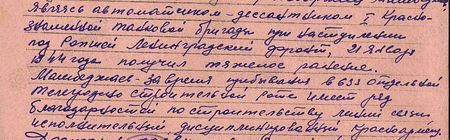 являясь автоматчиком-десантником 1 Красно-
знаменной танковой бригады при наступлении
под Ропшей Ленинградский фронт, 21 января
1944 года получил тяжелое ранение.
за время пребывания в 633 отдельной
телеграфно строительной роте имеет ряд
благодарностей по строительству линий связи
исполнительный, дисциплинированный красноармеец.